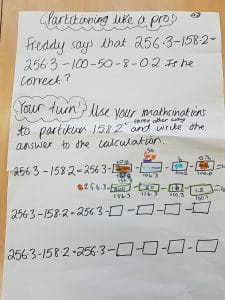 Partitioning like a pro!
Freddy says that 256.3-158.2=
256.3-100-50-8-0.2 Is he
correct?
Your turn! Use your mathcination
to partition 158.2 three other ways and write the
answer to the calculation.
256.3-158.2=256.3-
256.3-
256.3-158.2=256.3-□-□-□-□
256.3-158.2=256.3-□-□-□-□